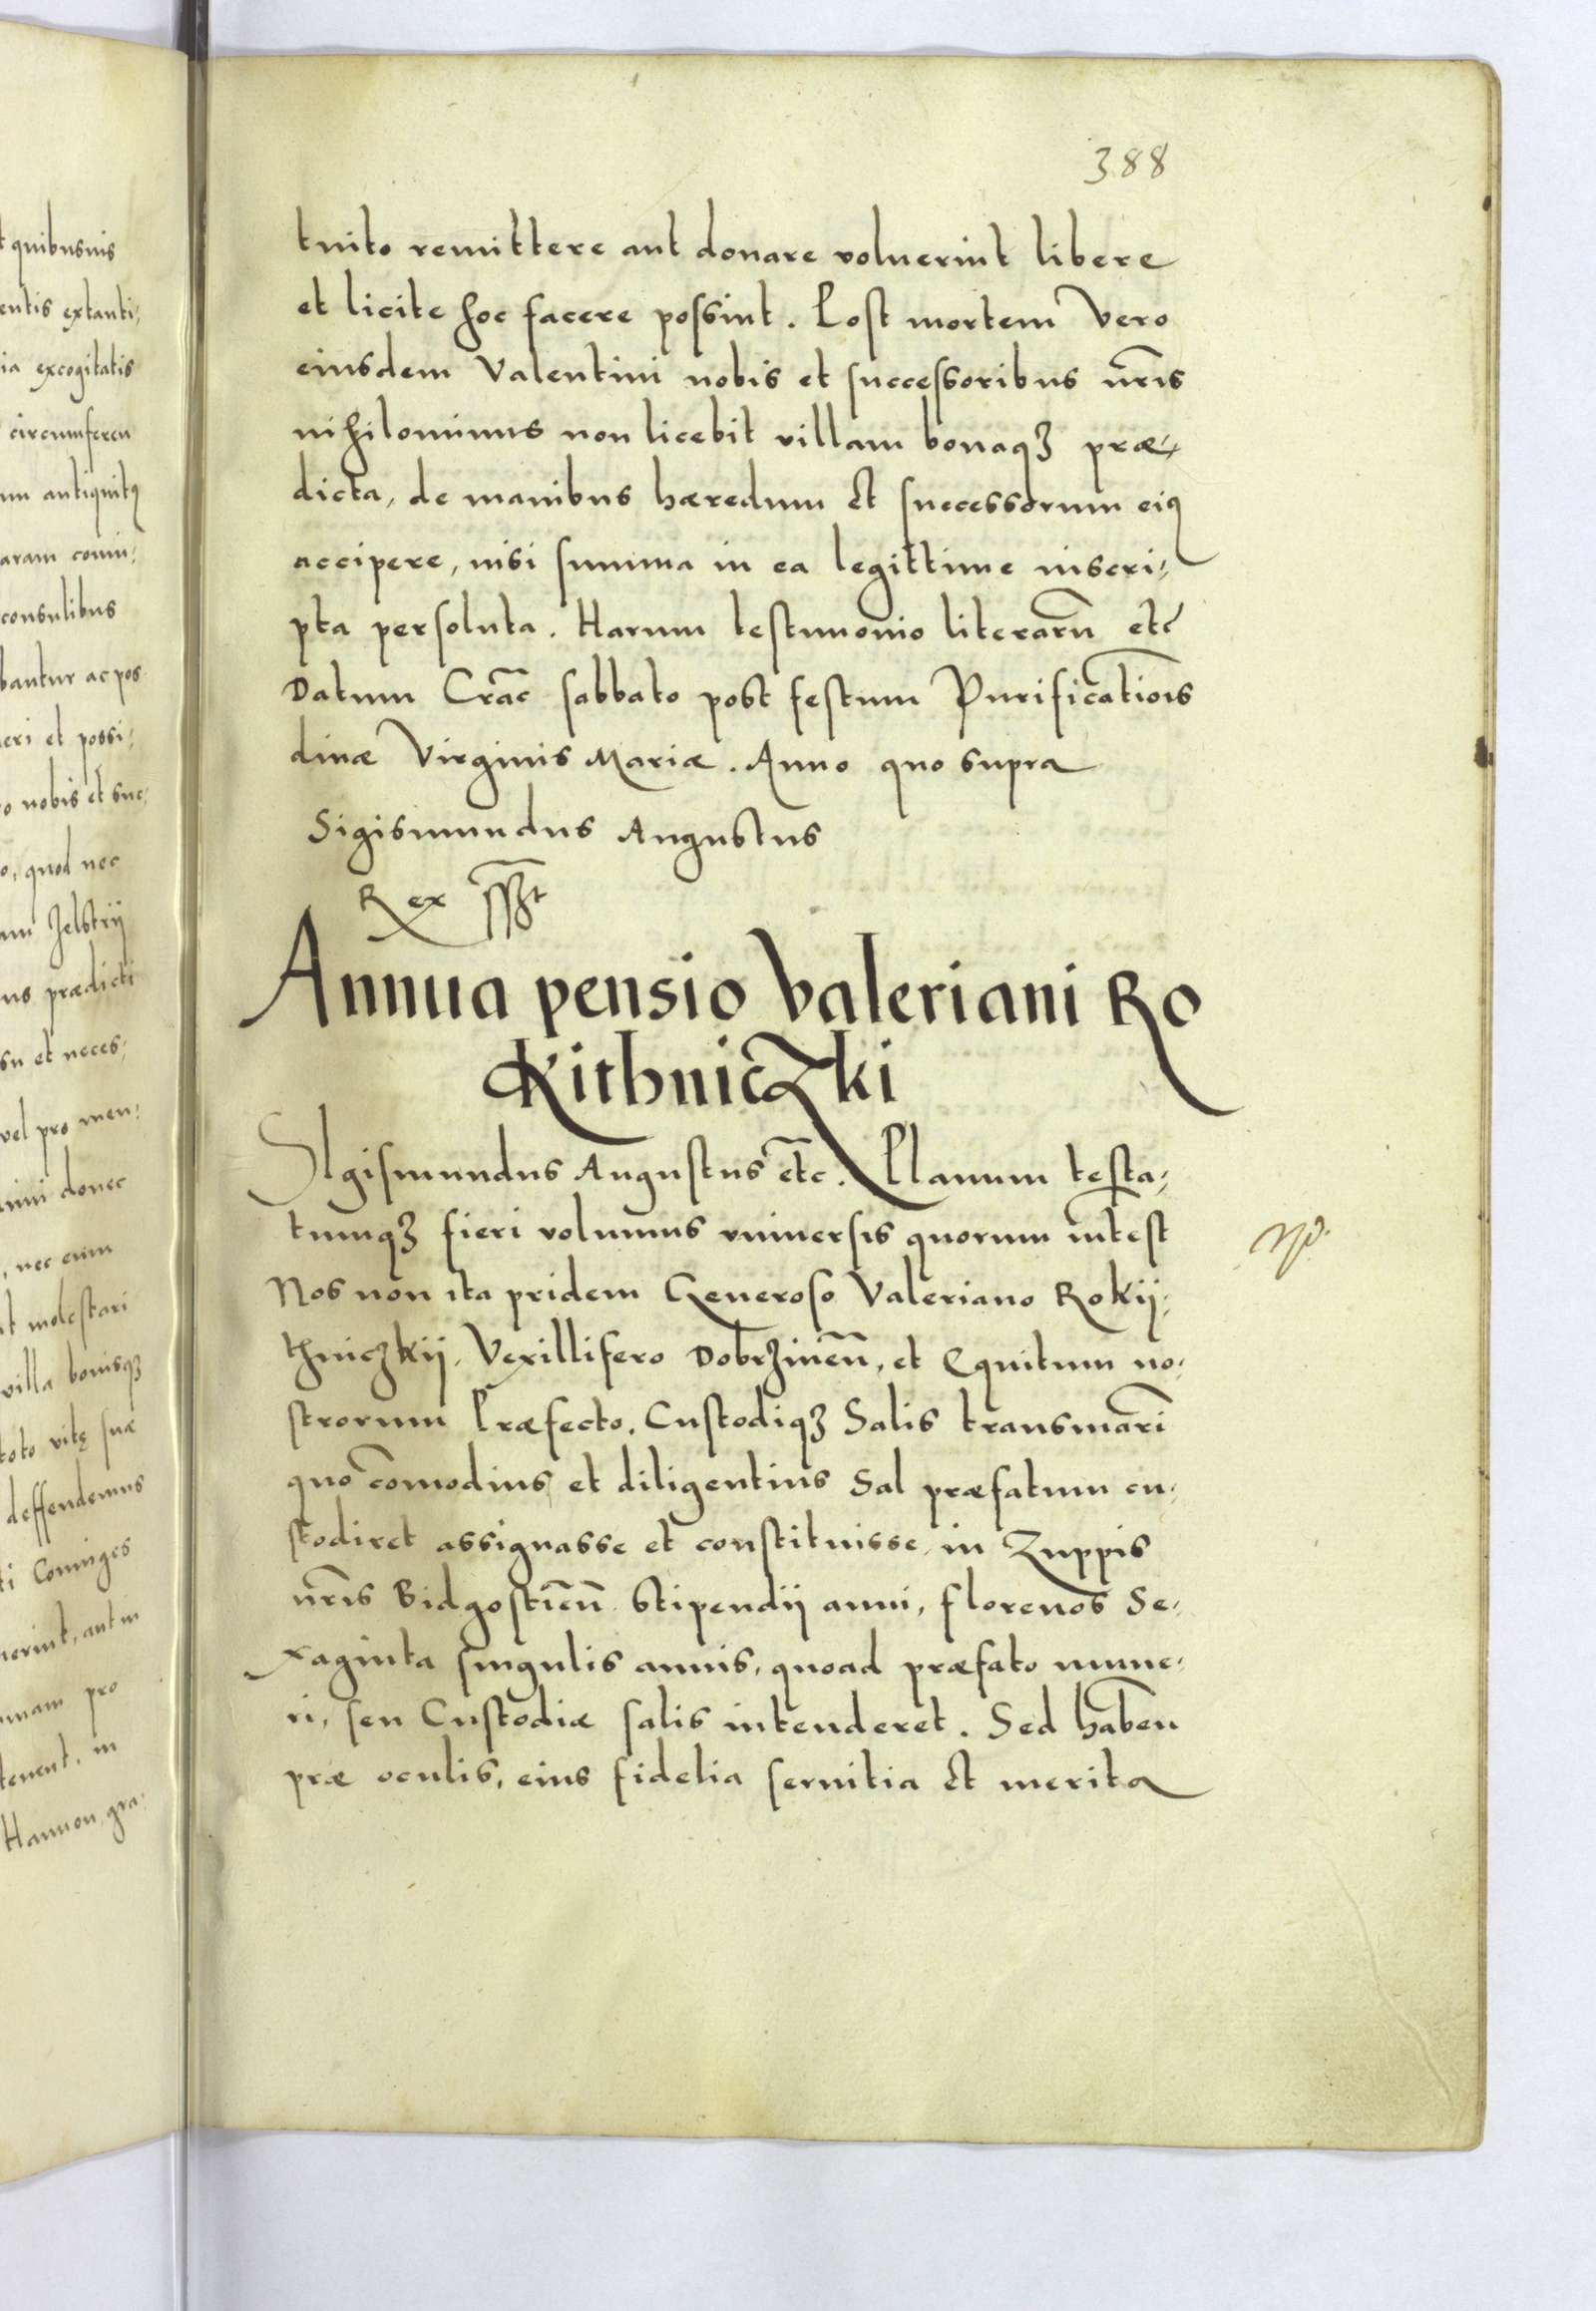 388
tuito remittere aut donare voluerint libere
et licite hoc facere possint. Post mortem vero
eiusdem Valentini nobis et successoribus nr̃is
nihilominus non licebit villam bonaqꝫ præ-
dicta, de manibus hæredum et successorum eiꝰ
accipere, nisi summa in ea legittime inscri-
pta persoluta. Harum testimonio literarũ etc̃
Datum Crac̃ sabbato post festum Purificatiõis
diuæ Virginis Mariæ. Anno quo supra
Sigismundus Augustus
Rex
Annua pensio Valeriani Ro
Kithniczki
SIgismundus Augustus etc̃. Planum testa-
tumqꝫ fieri volumus vniuersis quorum int̃est
Nos non ita pridem Generoso Valeriano Rokij-
thniczkij, Vexillifero Dobrzineñ, et Equitum no-
strorum Præfecto, Custodiqꝫ Salis transmarĩ
quo cõmodius et diligentius Sal præfatum cu-
stodiret assignasse et constituisse in Zuppis
nr̃is Bidgostieñ Stipendij anni, florenos Se-
xaginta singulis annis, quoad præfato mune-
ri, seu Custodiæ salis intenderet. Sed habeñ
præ oculis, eius fidelia seruitia et merita
quibusuis
entis extanti-
ia excogitatis
circumferen
um antiquitꝰ
consulibus
bantur ac pos
eri et possi-
o nobis et suc-
o, quod nec
am Jelstrij
us prædicti
su et neces-
vel pro men-
imi donec
, nec eum
t molestari
villa bonisqꝫ
toto vitę suæ
deffendemus
ti Coniuges
uerint, aut in
mam pro
tenent, in
Hannon, gra-